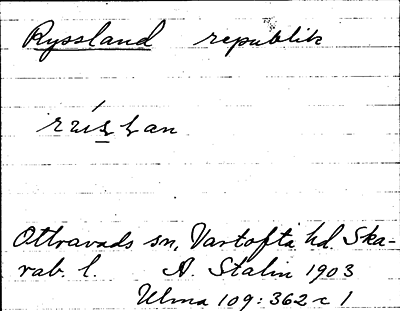 Ryssland republik
Ottravads sn, Vartofta hd. Ska-
rab. l. A. Stalin 1903
Ulma 109:362 c 1